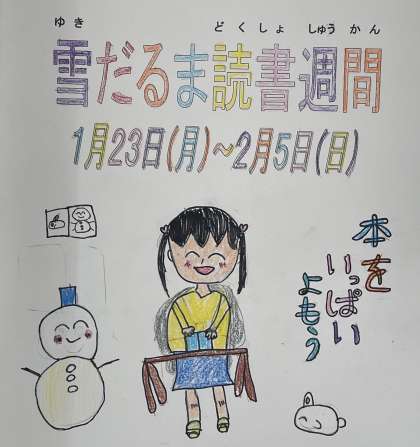 ゆき どくしょ しゅうかん
雪だるま読書週間
1月23日(月)~2月5日(日)
本を
いっぱい
よもう